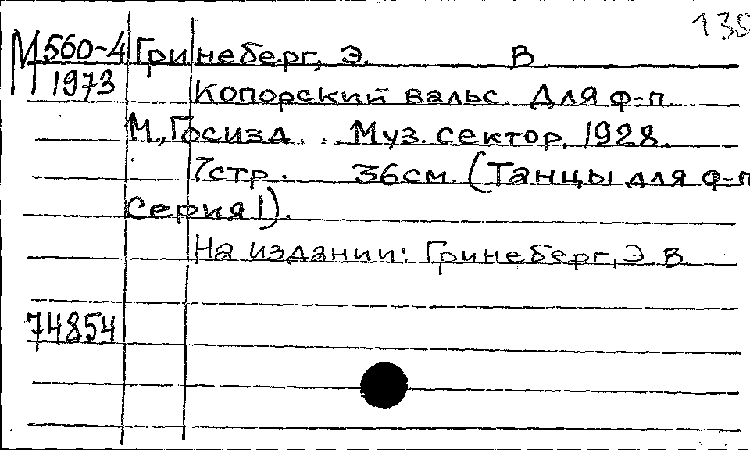 135
М 560-4 Гринеберг, Э. В
1973
Копорский вальс. Для ф-п.
М., Госизд. . Муз. сектор, 1928.
7стр. 36см. (Танцы для ф-п
Серия 1).
На издании: Гринеберг, Э В
74854